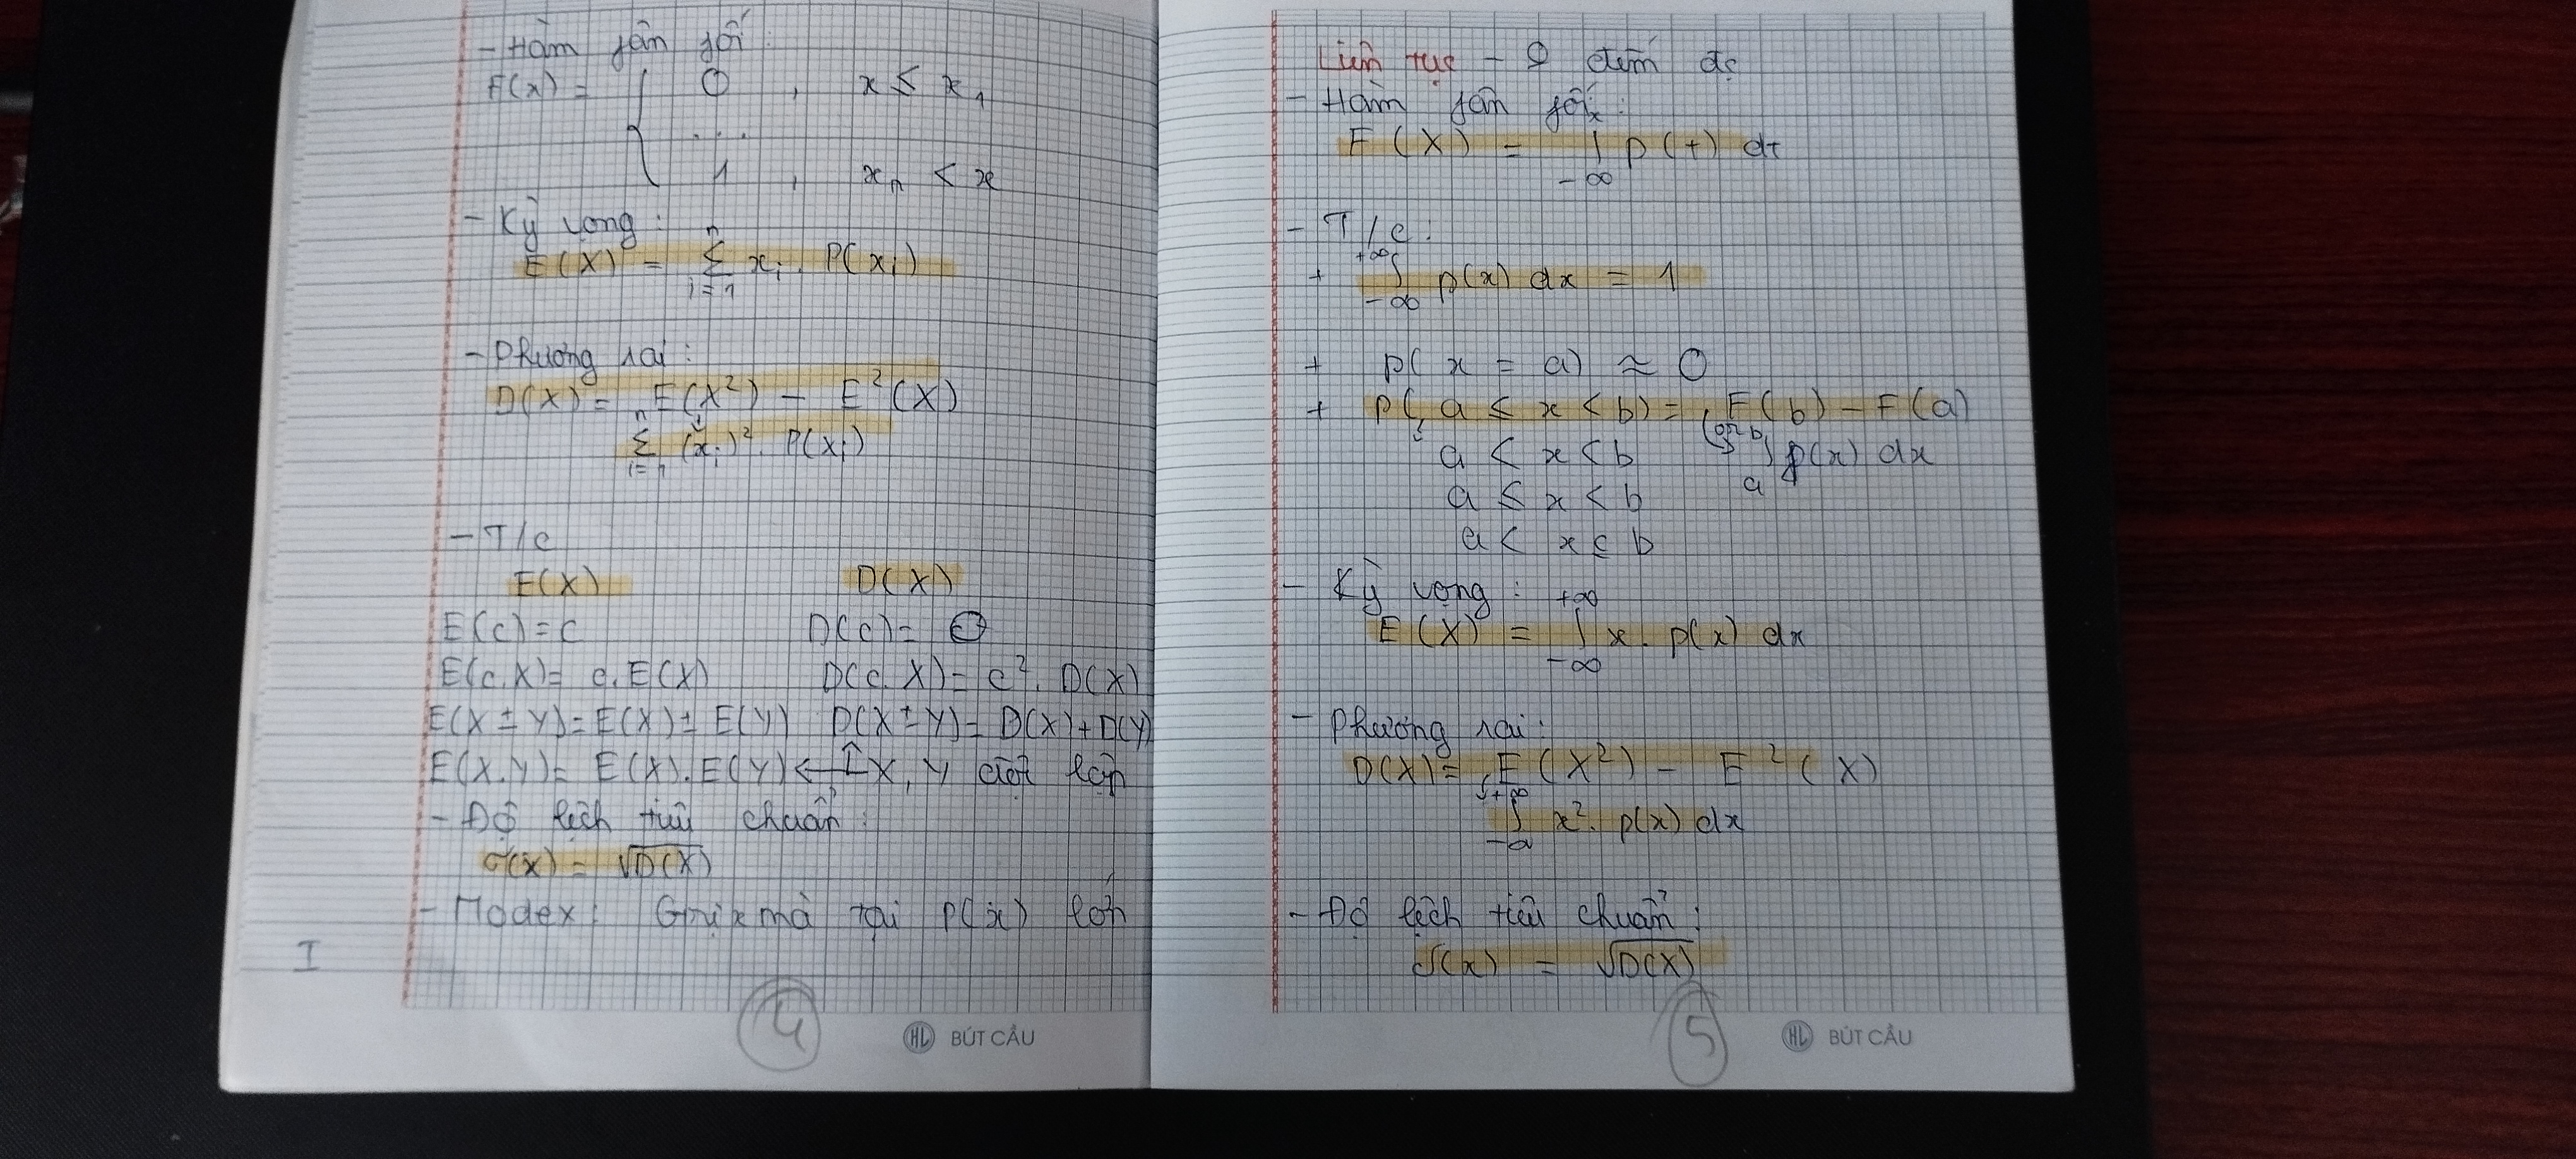 - Hàm fân fối :
F(x) = { 0 , x ≤ x₁
...
1 , xₙ < x
- Kỳ vọng :
E(X) = n Σ i=1 xᵢ . P(xᵢ)
- Phương sai :
D(X) = E(X²) - E²(X)
n Σ i=1 (xᵢ)² . P(xᵢ)
- T/c
E(X) D(X)
E(c) = c D(c) = 0
E(c.X) = c.E(X) D(c.X) = c² . D(X)
E(X ± Y) = E(X) ± E(Y) D(X ± Y) = D(X) + D(Y)
E(X.Y) = E(X).E(Y) ← X, Y độc lập
- Độ lệch tiêu chuẩn :
σ(x) = √D(X)
- Modex : Gtrị x mà tại P(x) lớn
I
4
HL BÚT CÂU
Liên tục - đếm đc
- Hàm fân fối :
F(X) = x ∫ -∞ p(t) dt
- T/c :
+ +∞ ∫ -∞ p(x) dx = 1
+ p( x = a) ≈ 0
+ p( a ≤ x < b) = F(b) - F(a)
a < x < b b ∫ a p(x) dx
a ≤ x < b
a < x ≤ b
- Kỳ vọng :
E(X) = +∞ ∫ -∞ x . p(x) dx
- Phương sai :
D(X) = E(X²) - E²(X)
+∞ ∫ -∞ x² . p(x) dx
- Độ lệch tiêu chuẩn :
σ(x) = √D(X)
5
HL BÚT CÂU